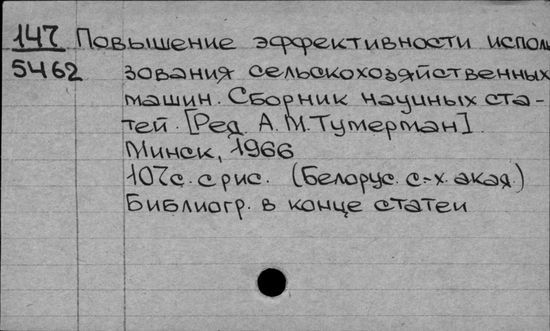 147 Повышение эффективности исполь
5462 зования сельскохозяйственных
машин. Сборник научных ста-
тей. [Ред. А. М. Тумерман].
Минск, 1966
107с. с рис. (Белорус. с-х. акад.)
Библиогр. в конце статей